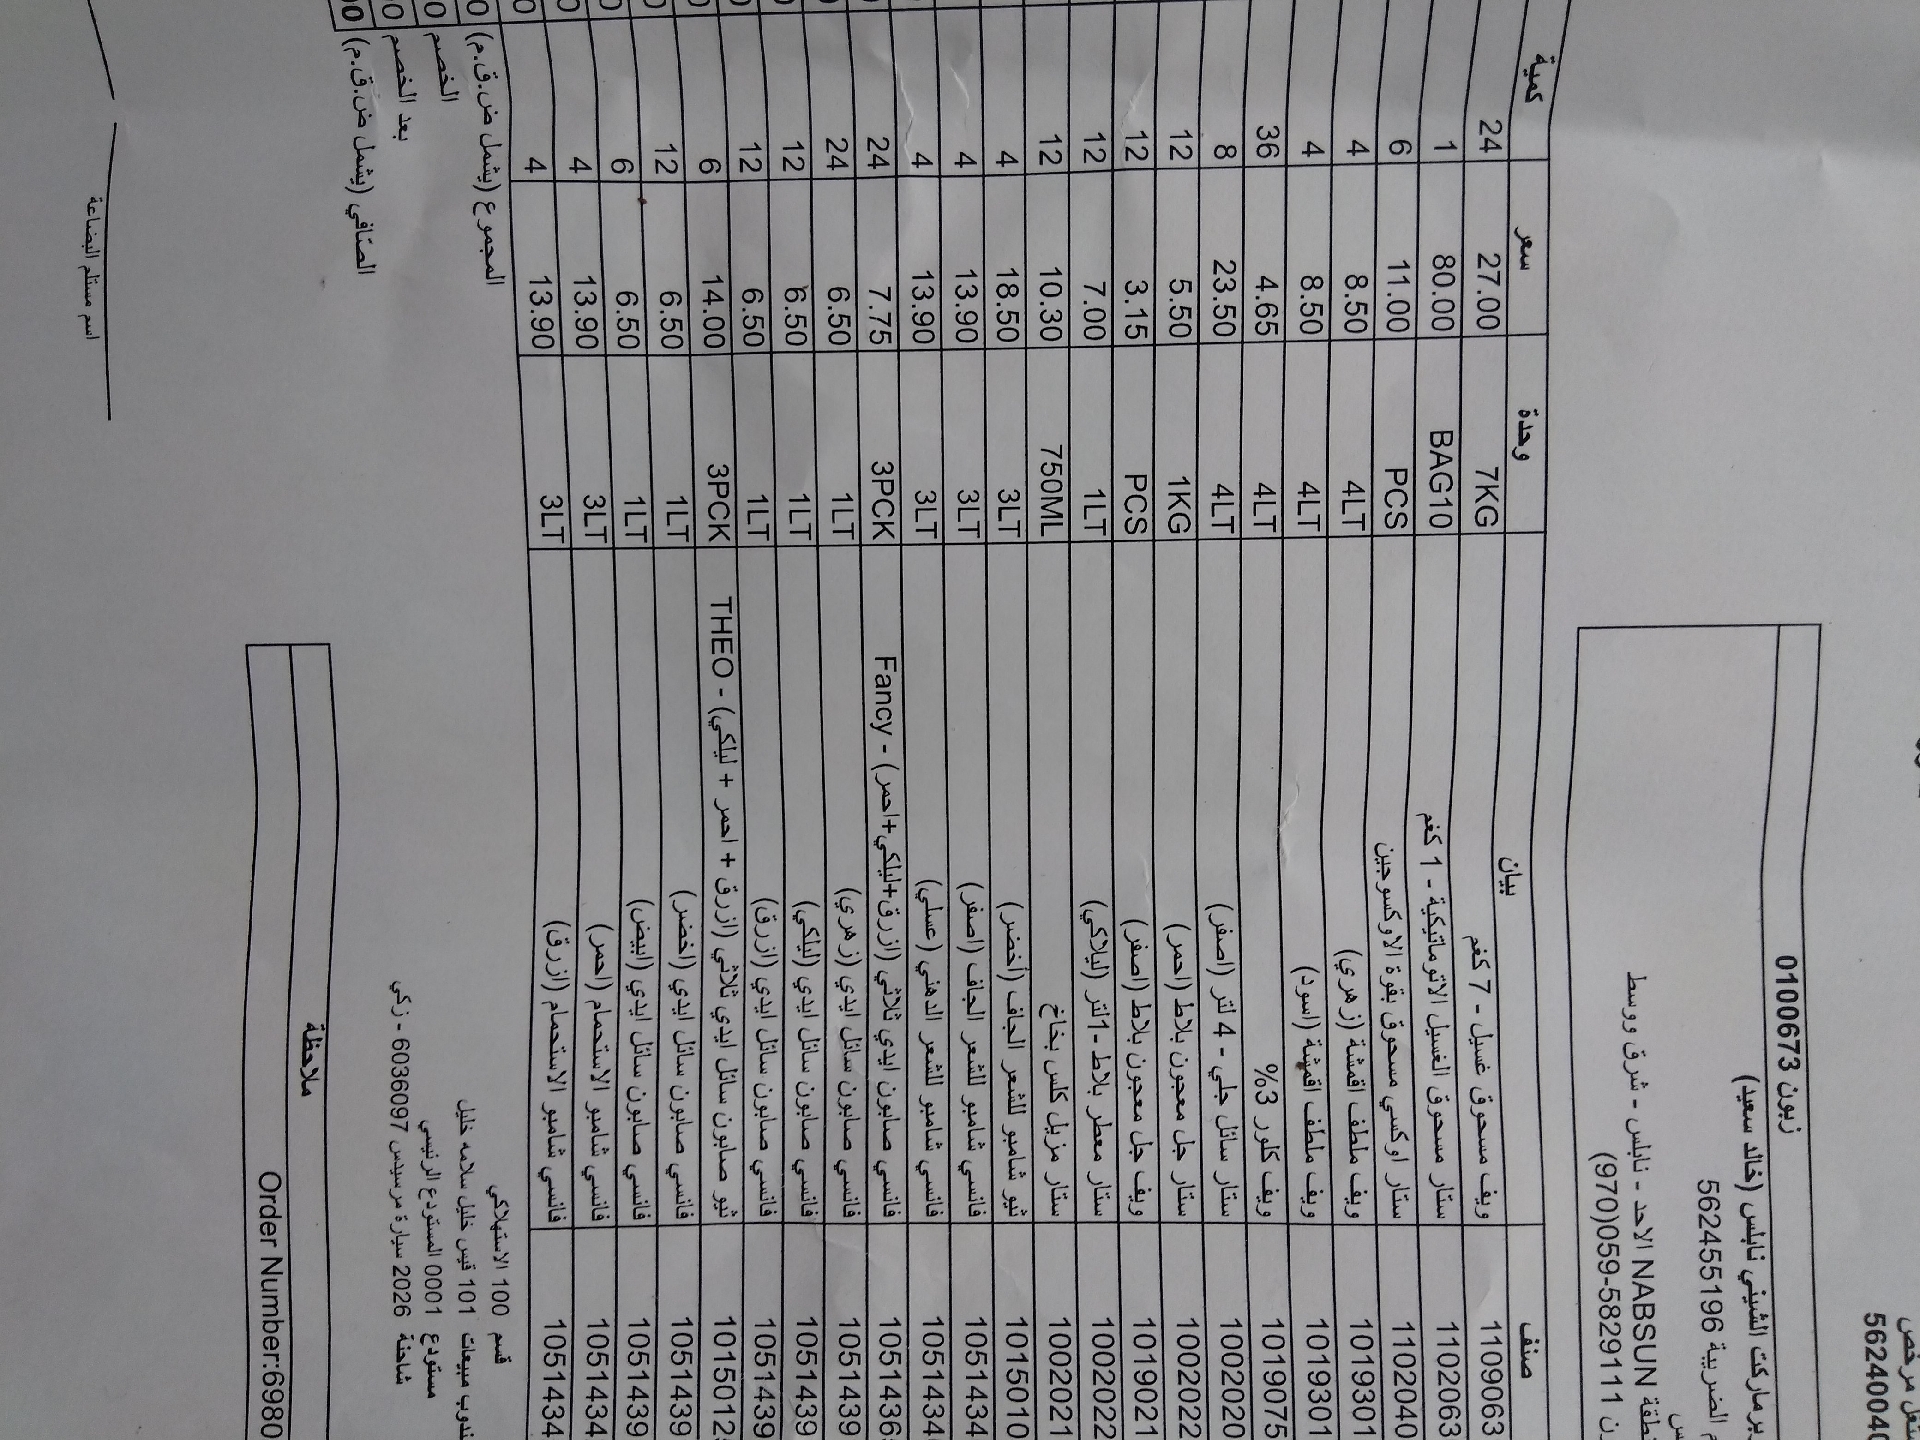 غل مرخص
56240040
زبون 01006673
برماركت الشيني نابلس (خالد سعيد)
م الضريبة 562455196
طقة NABSUN الاحد - نابلس - شرق ووسط
ن 059-5829111(970)
صنف بيان وحدة سعر كمية
1109063 ويف مسحوق غسيل - 7 كغم 7KG 27.00 24
1102063 ستار مسحوق الغسيل الاتوماتيكية - 1 كغم BAG10 80.00 1
1102040 ستار اوكسي مسحوق بقوة الاوكسوجين PCS 11.00 6
1019301 ويف ملطف اقمشة (زهري) 4LT 8.50 4
1019301 ويف ملطف اقمشة (اسود) 4LT 8.50 4
1019075 ويف كلور 3% 4LT 4.65 36
1002020 ستار سائل جلي - 4 لتر (اصفر) 4LT 23.50 8
1002022 ستار جل معجون بلاط (احمر) 1KG 5.50 12
1019021 ويف جل معجون بلاط (اصفر) PCS 3.15 12
1002022 ستار معطر بلاط -1لتر (ليلاكي) 1LT 7.00 12
1002021 ستار مزيل كلس بخاخ 750ML 10.30 12
1015010 ثيو شامبو للشعر الجاف (أخضر) 3LT 18.50 4
1051434 فانسي شامبو للشعر الجاف (اصفر) 3LT 13.90 4
1051434 فانسي شامبو للشعر الدهني (عسلي) 3LT 13.90 4
1051436 فانسي صابون ايدي ثلاثي (ازرق+ليلكي+احمر) - Fancy 3PCK 7.75 24
1051439 فانسي صابون سائل ايدي (زهري) 1LT 6.50 24
1051439 فانسي صابون سائل ايدي (ليلكي) 1LT 6.50 12
1051439 فانسي صابون سائل ايدي (ازرق) 1LT 6.50 12
1015012 ثيو صابون سائل ايدي ثلاثي (ازرق + احمر + ليلكي) - THEO 3PCK 14.00 6
1051439 فانسي صابون سائل ايدي (اخضر) 1LT 6.50 12
1051439 فانسي صابون سائل ايدي (ابيض) 1LT 6.50 6
1051434 فانسي شامبو الاستحمام (احمر) 3LT 13.90 4
1051434 فانسي شامبو الاستحمام (ازرق) 3LT 13.90 4
قسم 100 الاستهلاكي المجموع (يشمل ض.ق.م)
ندوب مبيعات 101 قيس خليل سلامه خليل الخصم
مستودع 0001 المستودع الرئيسي بعد الخصم
شاحنة 2026 سيارة مرسيدس 6036097 - زكي الصافي (يشمل ض.ق.م)
ملاحظة
Order Number:6980
اسم مستلم البضاعة